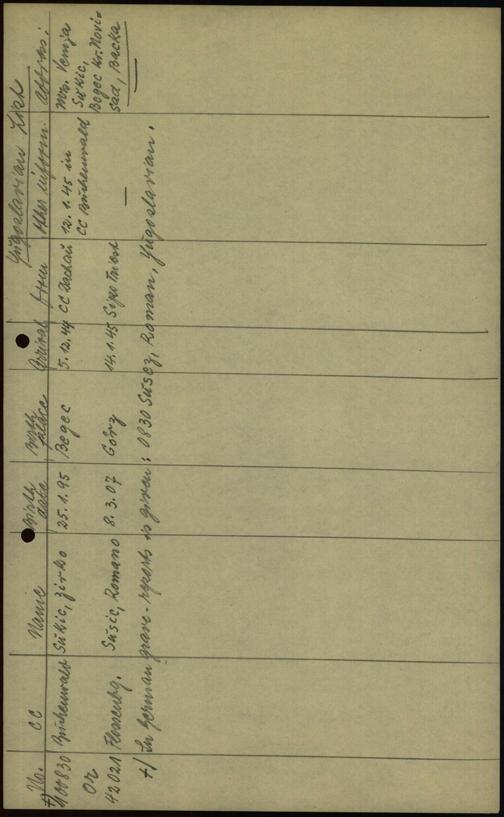 Yugoslavian List
No. CC Name Birth date Birth place Arrival from Other inform. Address:
+) 100830 Buchenwald Sukic, Zirko 25.1.95 Begec 5.12.44 CC Dachau 12.1.45 in CC Buchenwald Mrs. Vemja Sukic, Begec Kr. Novi-Sad, Backa
or
42021 Flossenbg. Susic, Romano 8.3.07 Görz 14.1.45 Sipo Triest —
+) In German grave-reports is given: 0830 Susez, Roman, Yugoslavian.